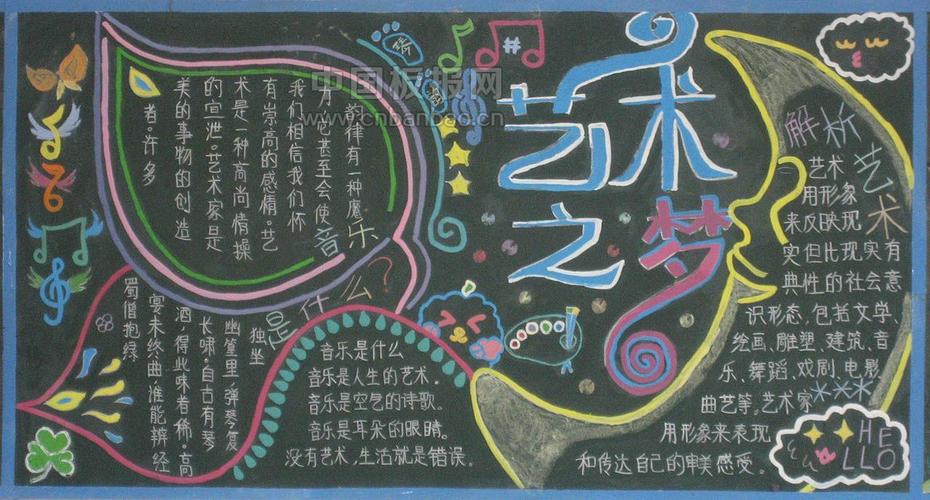 艺术
之梦
韵律有一种魔
力，它甚至会使
我们相信我们怀
有崇高的感情。艺
术是一种高尚情操
的宣泄。艺术家是
美的事物的创造
者。许多
音乐
是什么？
独坐
幽篁里，弹琴复
长啸。自古有琴
酒，得此味者稀。高
宴未终曲，谁能辨经
蜀僧抱绿
音乐是什么
音乐是人生的艺术。
音乐是空气的诗歌。
音乐是耳朵的眼睛。
没有艺术，生活就是错误。
解析艺术
艺术
用形象
来反映现
实但比现实有
典性的社会意
识形态，包括文学、
绘画、雕塑、建筑、音
乐、舞蹈、戏剧、电影
曲艺等。艺术家
用形象来表现
和传达自己的审美感受。
HE
LLO
中国板报网
www.cnbanbao.cn